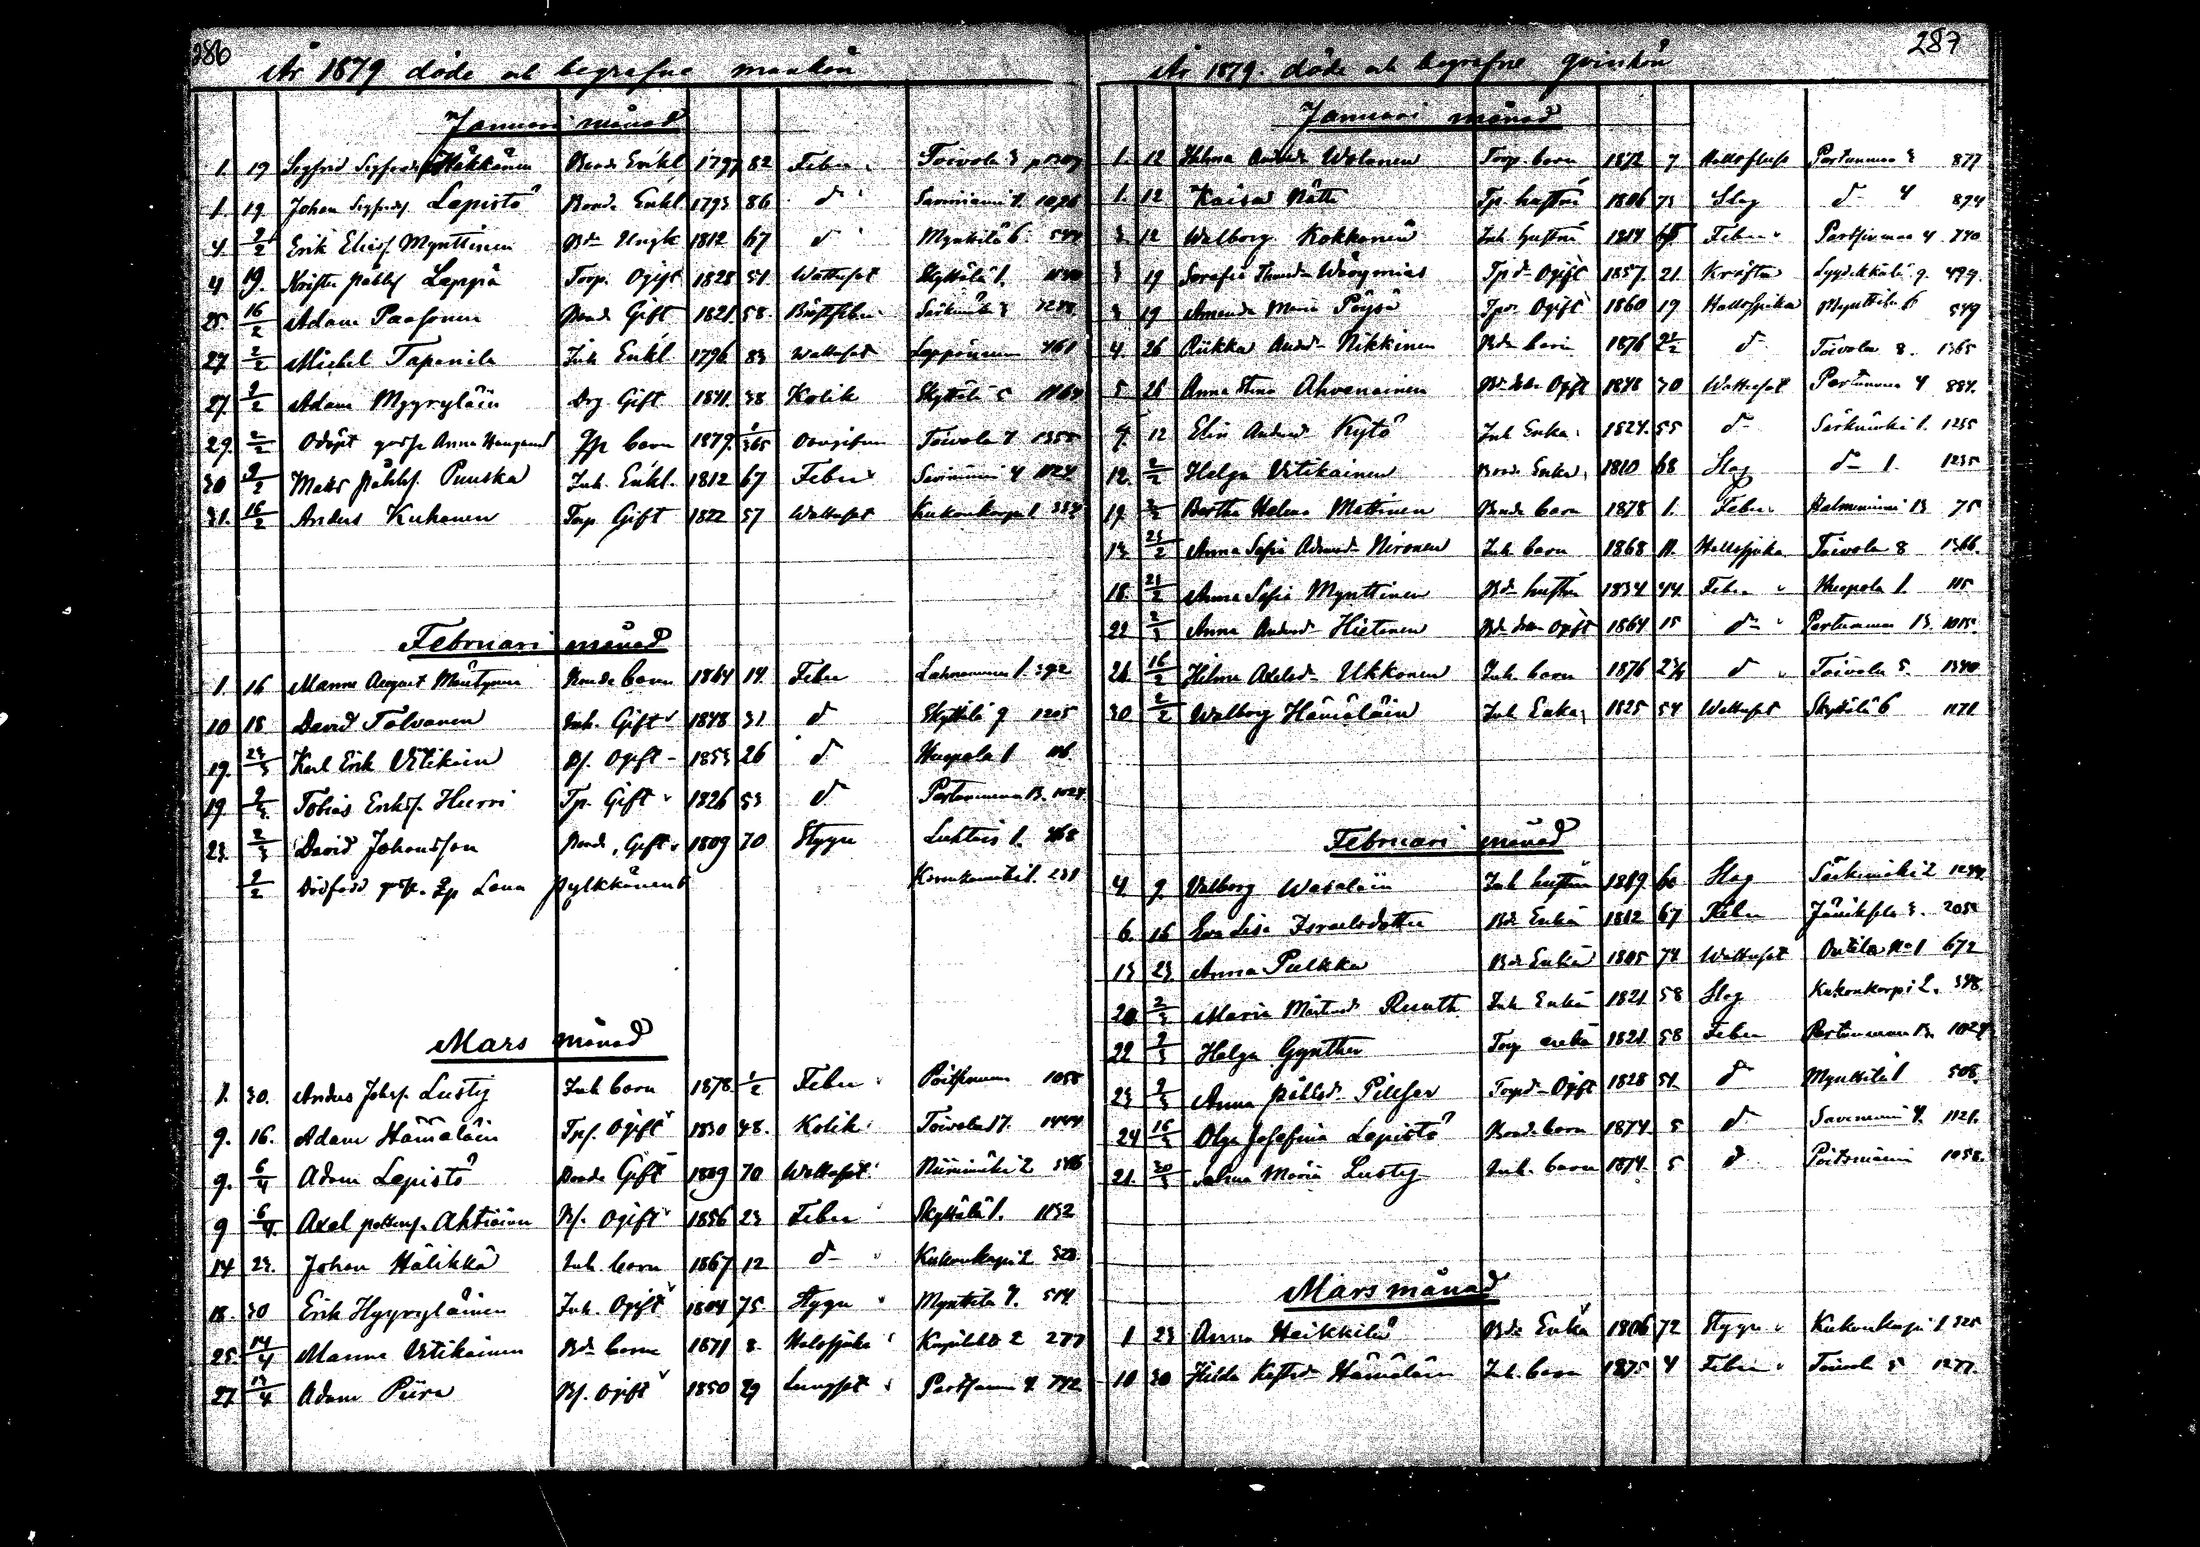 286
År 1879 döde och begrafne mankön
Januari månad
1. 19 Sigfrid Sigfrids Häkkänen Bonde Enkl 1797 82 Feber Toivola 3
1. 19. Johan Sigfrids. Lepistö Bonde Enkl 1793 86 d Saviniemi 4. 1026
4. 2/2 Erik Eliss Mynttinen 1812 67 d Mynttilä 6.
4 19. Krister Påhls Leppä Torp. Ogift 1828 51. Wattusot Skyttälä 1.
25. 16/2 Adam Paasonen Bond. Gift 1821. 58. Bröstfeber Särkimäki 3
27. 2/2 Michel Tapanila Inh Enkl. 1796 83 Wattusot 461
27. 2/2 Adam Myyryläin Drg Gift 1841. 38 Kolik Skyttälä 5
29. 2/2 Odöpt gosse Anna barn 1879. 1/365 Toivola 7 1355
30 2/2 Matts Påhls. Puuska Inh. Enkl. 1812 67 Feber Saviniemi 4
31. 16/2 Anders Kuhanen Torp. Gift 1822 57 Wattusot Kukonkorpi 1
Februari månad
1. 16 Manne August Mäntynen Bonde barn 1864 14. Feber 1. 392
10 18 David Tolvanen Inh. Gift 1848 31 d Skyttälä 9 1205
19. 23/3 Karl Erik Vitikain Bs. Ogift 1853 26 d Huopola 1 116.
19. 2/3 Tobias Eriks. Hurri Tp. Gift 1826 53 d Partumaa 13. 1024
23. 2/3 David Johansson Bond. Gift 1809 70 Stygn Luhtiis 1. 468
2/2 Dödfödd Lena Pylkkänens
Mars månad
1. 30. Anders Johs. Lustig Inh barn 1878. 1/2 Feber 1058
9. 16. Adam Hämäläin Tps. Ogift 1830 48. Kolik Toivola 17. 1444
9. 6/4 Adam Lepistö Bonde Gift 1809 70 Wattusot Niinimäki 2
9 6/4. Axel Ahtiainen Bs. Ogift 1856 23 Feber Skyttälä 1. 1132
14 23. Johan Hälikkä Inh barn 1867 12 d Kukonkorpi 2 328
18. 30 Erik Hyyryläinen Inh. Ogift 1804 75 Stygn Mynttilä 7. 514
25. 14/4 Manne Vitikainen Bd. barn 1871 8. Halssjuka 2 277
27. 13/4 Adam Piira Bs. Ogift 1850 29 Lungsot 742
287
År 1879. döde och begrafne qvinnkön
Januari månad
1. 12 Helma Andersd Wolanen Torp. barn 1872 7 Partumaa 3 877
1. 12 Kaisa Nätti Tp. hustru 1806 73 Slag d 4 874
3. 12 Walborg Kokkonen Inh hustru 1814 Feber 4 740
3 19 Serafia Tpd. Ogift 1857. 21. Kräfta 499.
3 19 Amanda Maria Pöysä Ogift 1860 19 Halssjuka Mynttilä 6 549
4. 26 Riikka Andersd Nikkinen Bd. barn 1876 2 1/2 d Toivola 8. 1365
5 26 Anna Stina Ahvenainen Ogift 1848 30 Wattusot Partumaa 4 884.
7. 12 Elin Andersd Kytö Inh Enka 1824. 55 d Särkimäki 1. 1235
12. 2/2 Helga Vitikainen Bond. Enka 1810 68 Slag d 1. 1235
Bertha Helena Mattinen Bonde barn 1878 1. Feber 13 75
13. 23/2 Anna Sofia Adamsd Nironen Inh barn 1868 11. Halssjuka Toivola 8 1366.
18. 23/2 Anna Sofia Mynttinen Bd. hustru 1834 44. Feber Huopola 1. 115
22 2/3 Anna Andersd Hietanen Ogift 1864 15 d Partumaa 13. 1015.
26. 16/2 Hilma Axelsd. Ukkonen Inh. barn 1876 2 3/4 d Toivola 5. 1340
30 2/2 Walborg Hämäläin Inh Enka 1825 54 Wattusot Skyttälä 6 1171
Februari månad
4. 9. Valborg Wesalain Inh hustru 1819. 60 Slag Särkimäki 2
6. 16 Eva Lisa Israelsdotter Bd. Enka 1812 67 Feber 3. 205
13 23 Anna Pulkka Bd. Enka 1805 74 Wattusot Outila No 1 672
20 2/3 Maria Mårtensd Ruuth Inh Enka 1821 58 Slag Kukonkorpi 2. 348
22 2/3 Helga Gynther Torp enka 1821. 58 Feber Partumaa 13. 1024
23 2/3 Anna Påhlsd. Torpd. Ogift 1828 51 d Mynttilä 1 508.
24 16/3 Olga Josefina Lepistö Bond. barn 1874. 5 d 4. 1121.
21. 30/3 Selma Maria Lustig Inh. barn 1874. 5 d 1058.
Mars månad
1 23 Anna Heikkilä Bd. Enka 1806 72 Stygn Kukonkorpi 1 325
10 30 Hilda Hämäläin Inh. barn 1875 4 Feber Toivola 5 1277.